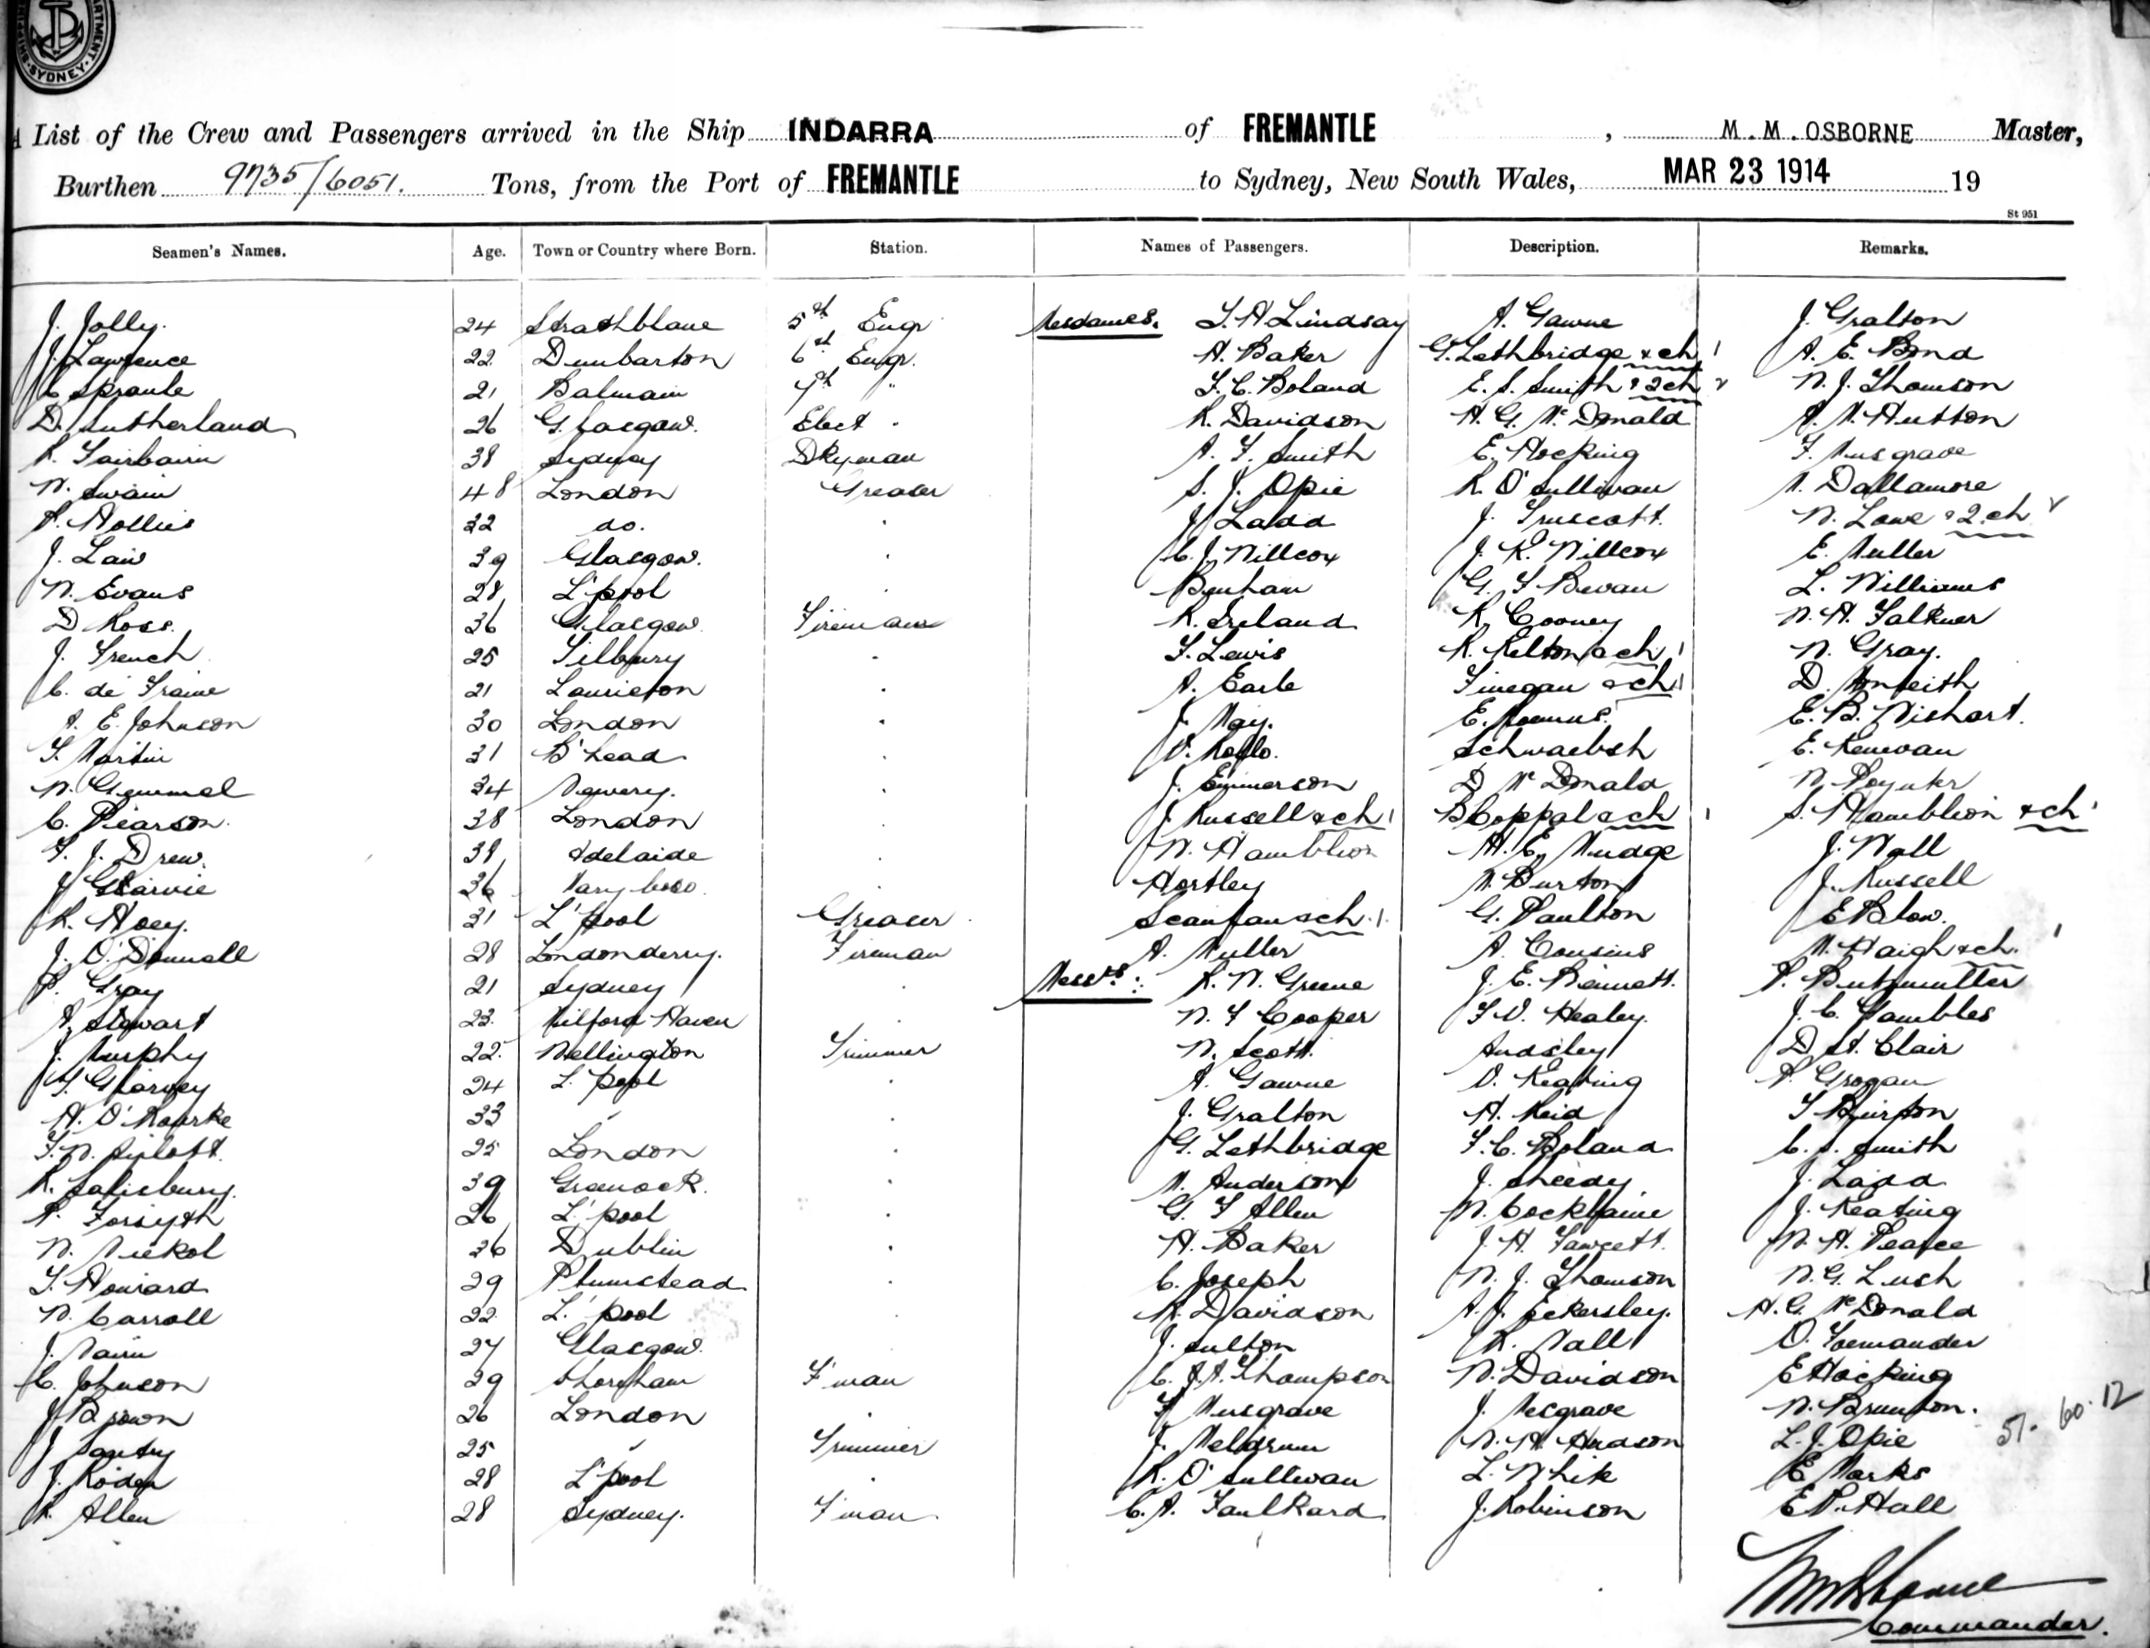 DEPARTMENT. SYDNEY.
A List of the Crew and Passengers arrived in the Ship INDARRA of FREMANTLE, M. M. OSBORNE Master,
Burthen 9735/6051. Tons, from the Port of FREMANTLE to Sydney, New South Wales, MAR 23 1914 19
St 951
Seamen's Names. Age. Town or Country where Born. Station. Names of Passengers. Description. Remarks.
J. Jolly. 24 Strathblane 5th Engr Mesdames. T. H Lindsay A. Gawne J. Gralton
J. Lawrence 22 Dumbarton 6th Engr. A. Baker G. Lethbridge & ch 1 A. E. Bond
C Sproule 21 Balmain 7th " F. C. Boland E. S. Smith & 2 ch W. J. Thomson
D. Sutherland 26 Glasgow. Elect R. Davidson H. G. McDonald A. W. Hutton
R. Fairbairn 38 Sydney Dkyman A. F. Smith E. Hocking F. Musgrave
W. Swain 48 London Greaser S. J. Opie R. O'Sullivan M. Dallamore
A. Hollis 32 do. J. Ladd J. Truscott. W. Lowe & 2 ch
J. Law 39 Glasgow. C. J. Willcox J. R. Willcox E. Muller
W. Evans 28 L'pool Benham G. F Bevan L. Williams
D Ross. 36 Glasgow Fireman R. Ireland R. Cooney W. H. Falkner
J. French 25 Tilbury F. Lewis R. Kelton & ch 1 W. Gray.
C. de Fraine 21 Laurieton A. Earle Finegan & ch 1 D. Monteith
A. E. Johnson 30 London J. May. E. B. Wishart.
F. Martin 31 B'head Schwaebsh E. Kenevan
W. Gemmel 34 Newery. J. Emmerson D McDonald W. Poynter
C. Pearson. 38 London J. Russell & ch 1 B Coppal & ch 1 S. Hamblion & ch 1
F. J. Drew. 38 Adelaide W. Hamblion H. E. Mudge J. Wall
J Garvie 36 Maryboro. Hortley W. Burton J. Russell
R. Hoey. 31 L'pool Greaser Scanlan & ch. 1. G. Paulton E Blow.
J. O'Donnall 28 Londonderry. Fireman A. Muller A. Cousins W. Haigh & ch. 1
P. Gray 21 Sydney Messrs: R. W. Greene J. E. Bennett.
A. Stewart 23. Milford Haven W. F Cooper F V. Healey. J. C. Gambles
J. Murphy 22. Wellington Trimmer W. Scott. Audsley D St. Clair
T. Garvey 24 L'pool A. Gawne V. Keating P. Grogan
H. O'Rourke 33 " J. Gralton H. Reid
F. W. 25 London G. Lethbridge F. C. Boland C. S. Smith
R. Salisbury. 39 Greenock. W. Anderson J. Sheedy J. Ladd
P. Forsyth 26 L'pool G. F Allen W. Cockbaine J. Keating
W. Nickol 36 Dublin H. Baker J. H. Fawcett. W. H. Pearce
T. Howard 29 Plumstead C. Joseph W. J. Thomson W. G. Lush
W. Carroll 22 L'pool R. Davidson A. J. Eckersley. H. G. McDonald
J. Nairn 27 Glasgow. J. Sutton R. Wall
C. Johnson 29 Shoreham F'man C. A. Thompson W. Davidson E Hocking
J Brown 26 London F Musgrave J. Mcgrave W. Brunton.
J 25 " Trimmer J. Meldrum W. H. Hudson L. J. Opie 51. 60. 12
J. Roden 28 L'pool R. O'Sullivan L. White E Marks
R. Allen 28 Sydney. F'man C. A. Faulkard J. Robinson E P. Hall
M M Osborne
Commander.